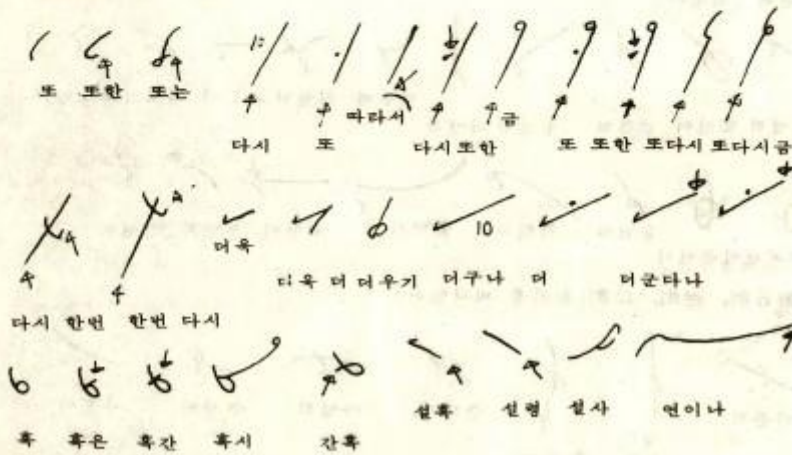 또 또한 또는
다시 또 따라서 다시 또한 금 또 또한 또다시 또다시금
더욱
10
더욱 더 더우기 더구나 더 더군다나
다시 한번 한번 다시
설혹 설령 설사 연이나
혹 혹은 혹간 혹시 간혹